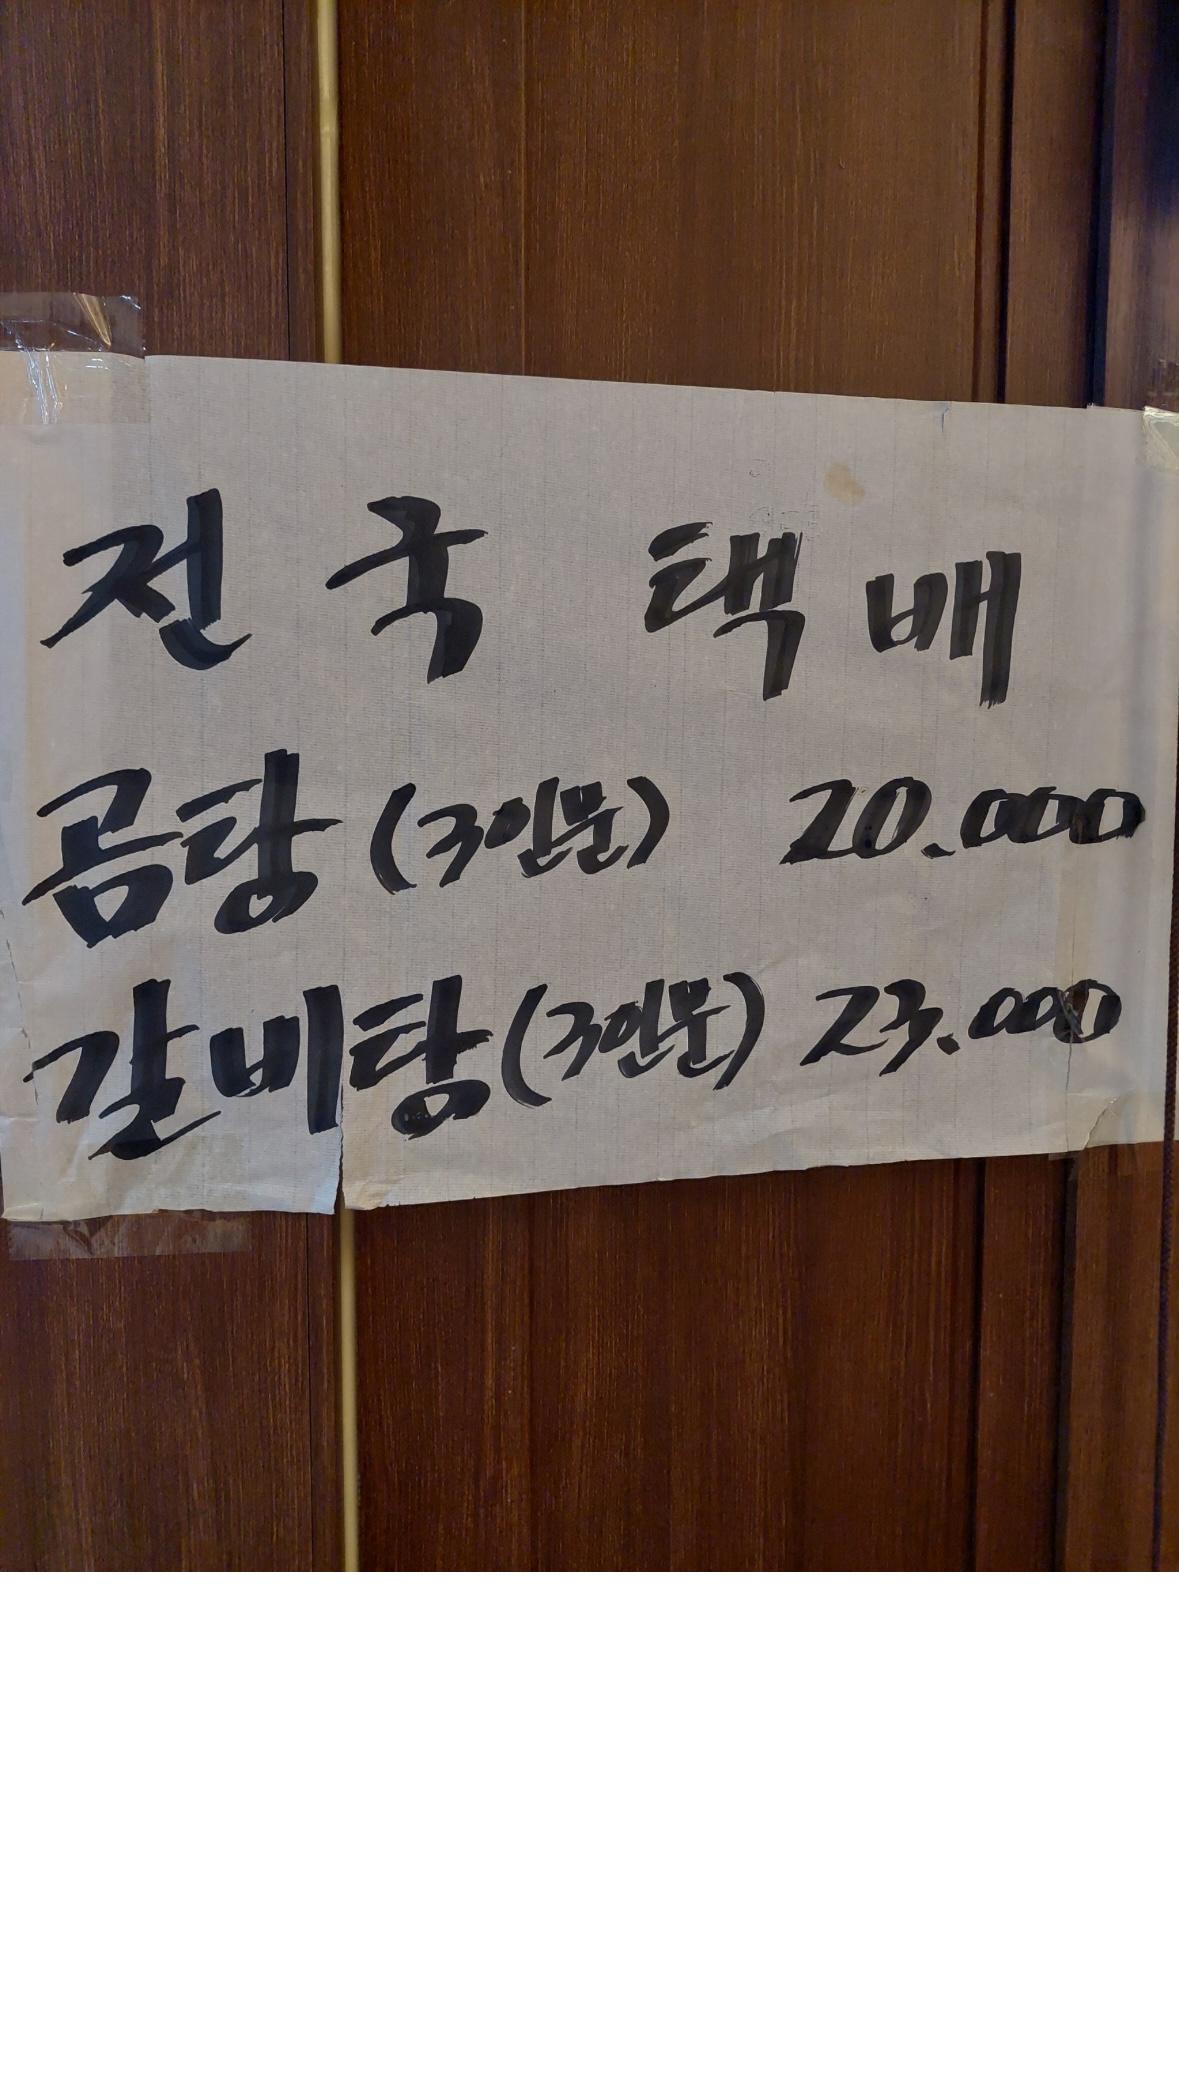 전국 택배
곰탕 (3인분) 20.000
갈비탕 (3인분) 23.000